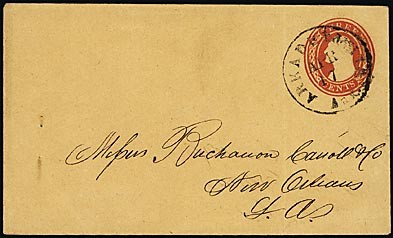 THREE
CENTS
ARKADELPHIA
Messrs Buchanon Carroll & Co
New Orleans
La.